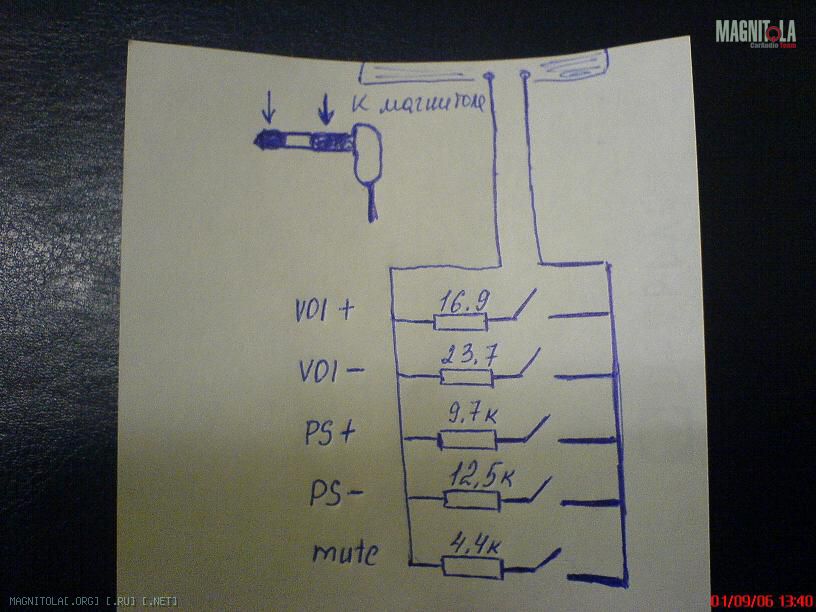 MAGNITOLA
CarAudio Team
к магнитоле
VOl +
16.9
VOl -
23.7
PS +
9.7к
PS -
12,5к
mute
4.4к
MAGNITOLA[.ORG] [.RU] [.NET]
01/09/06 13:40